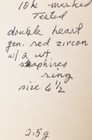 10K marked
Tested
double heart
gen. red zircon
w/2 wt.
sapphires
ring
size 6 1/2
2.5g